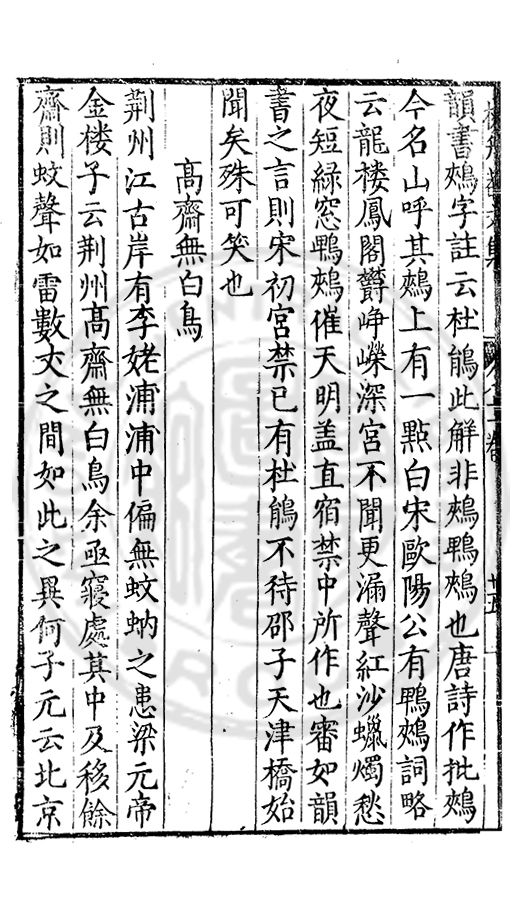 韻書鵊字註云杜鵑此解非鵊鴨鵊也唐詩作批鵊
今名山呼其鵊上有一點白宋歐陽公有鴨鵊詞略
云龍楼鳳閣欝崢嶸深宮不聞更漏聲紅沙蠟燭愁
夜短緑窓鴨鵊催天明盖直宿禁中所作也審如韻
書之言則宋初宮禁已有杜鵑不待邵子天津橋始
聞矣殊可笑也
高齋無白鳥
荆州江古岸有李姥浦浦中偏無蚊蚋之患梁元帝
金楼子云荆州高齋無白鳥余亟寢處其中及移餘
齋則蚊聲如雷數丈之間如此之異何子元云北京